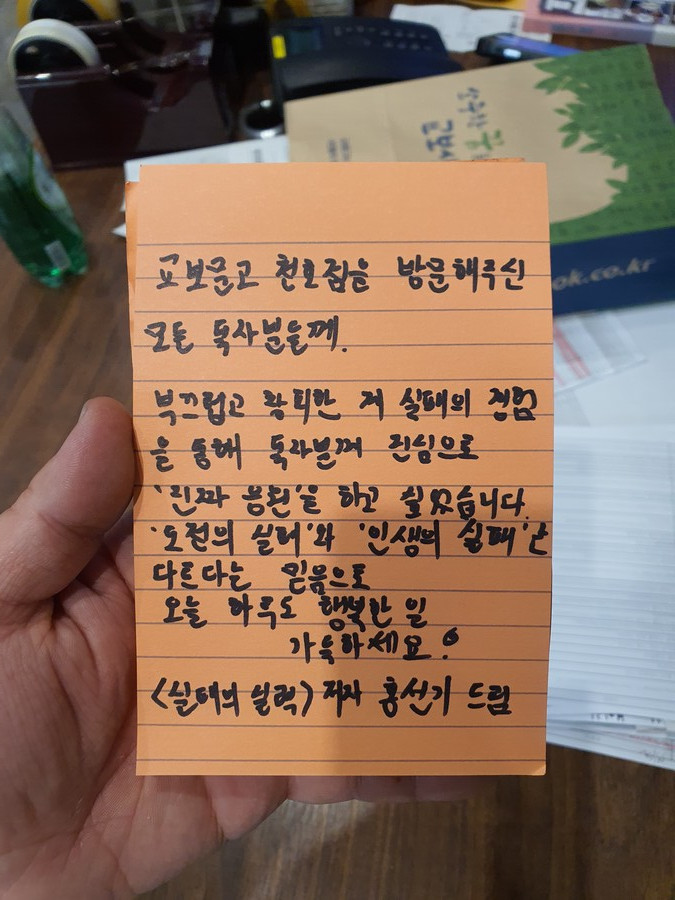 ok.co.kr
교보문고 천호점을 방문해주신
모든 독자분들께.
부끄럽고 창피한 저 실패의 경험
을 통해 독자분께 진심으로
'진짜 응원'을 하고 싶었습니다.
'도전의 실패'와 '인생의 실패'는
다르다는 믿음으로
오늘 하루도 행복한 일
가득하세요!
<실패의 실력> 저자 홍선기 드림